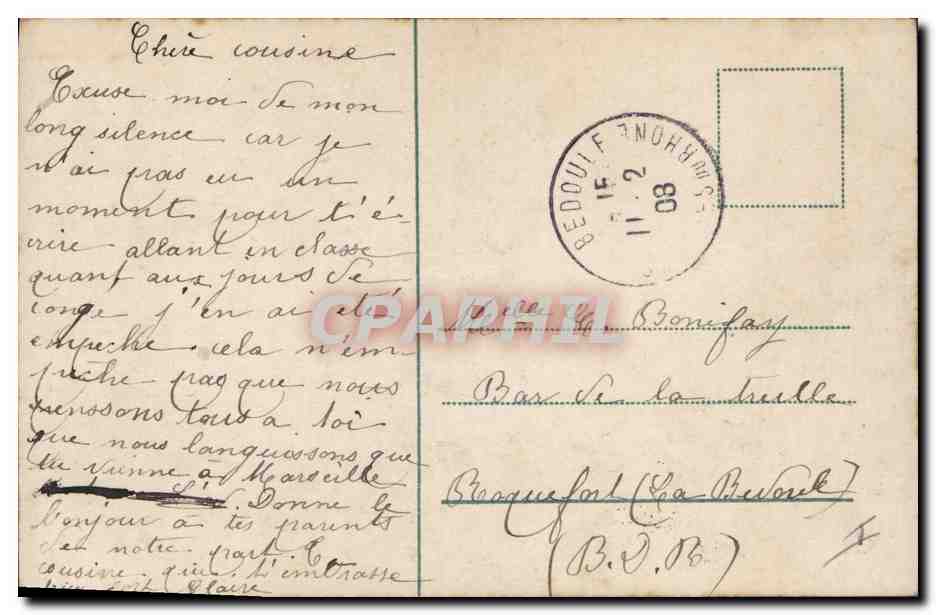 Chère cousine
Excuse moi de mon
long silence car je
n'ai pas eu un
moment pour t'é-
crire allant en classe
quant aux jours de
conge j'en ai été
empeche. cela n'em-
pêche pas que nous
penssons tous a toi
que nous languissons que
tu vienne à Marseille
Donne le
bonjour à tes parents
de notre part. Ta
cousine qui t'embrasse
bien fort Claire
BEDOULE BES DU RHONE
15
11 - 2
08
CPARHIL
Melle M. Bonifay
Bar de la treille
Roquefort (La Bedoule)
(B.D.R)